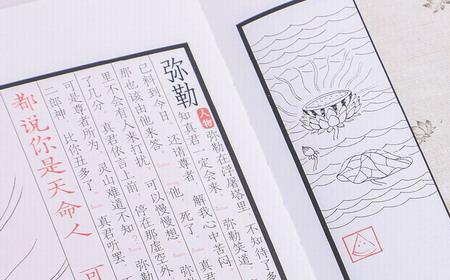 弥勒
人物
弥勒在浮屠塔里 不知待了多
知真君一定会来 解我心中苦闷 弥勒笑道
已料到今日 还请尊者 他 死了
那也该由他来答 可以慢慢想
里不会有人来打扰 停在那虚空外
了几分 真君依言上前
可是尊者所为 灵山难道不知 真君听罢
二郎神 比你丑多了 真君
都说你是天命人 可